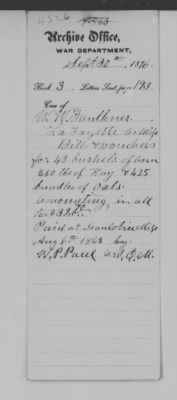 Archive Office,
WAR DEPARTMENT,
Sept 30th, 1876
Book 3 Letters Sent, page 193
Case of
W. W. Faulkner
La Fayette Co Miss
Bill & vouchers
for 43 bushels of corn
260 lbs of Hay & 435
bundles of Oats
amounting in all
to $
Paid at
Aug 6th 1863 by
W. P. Paul